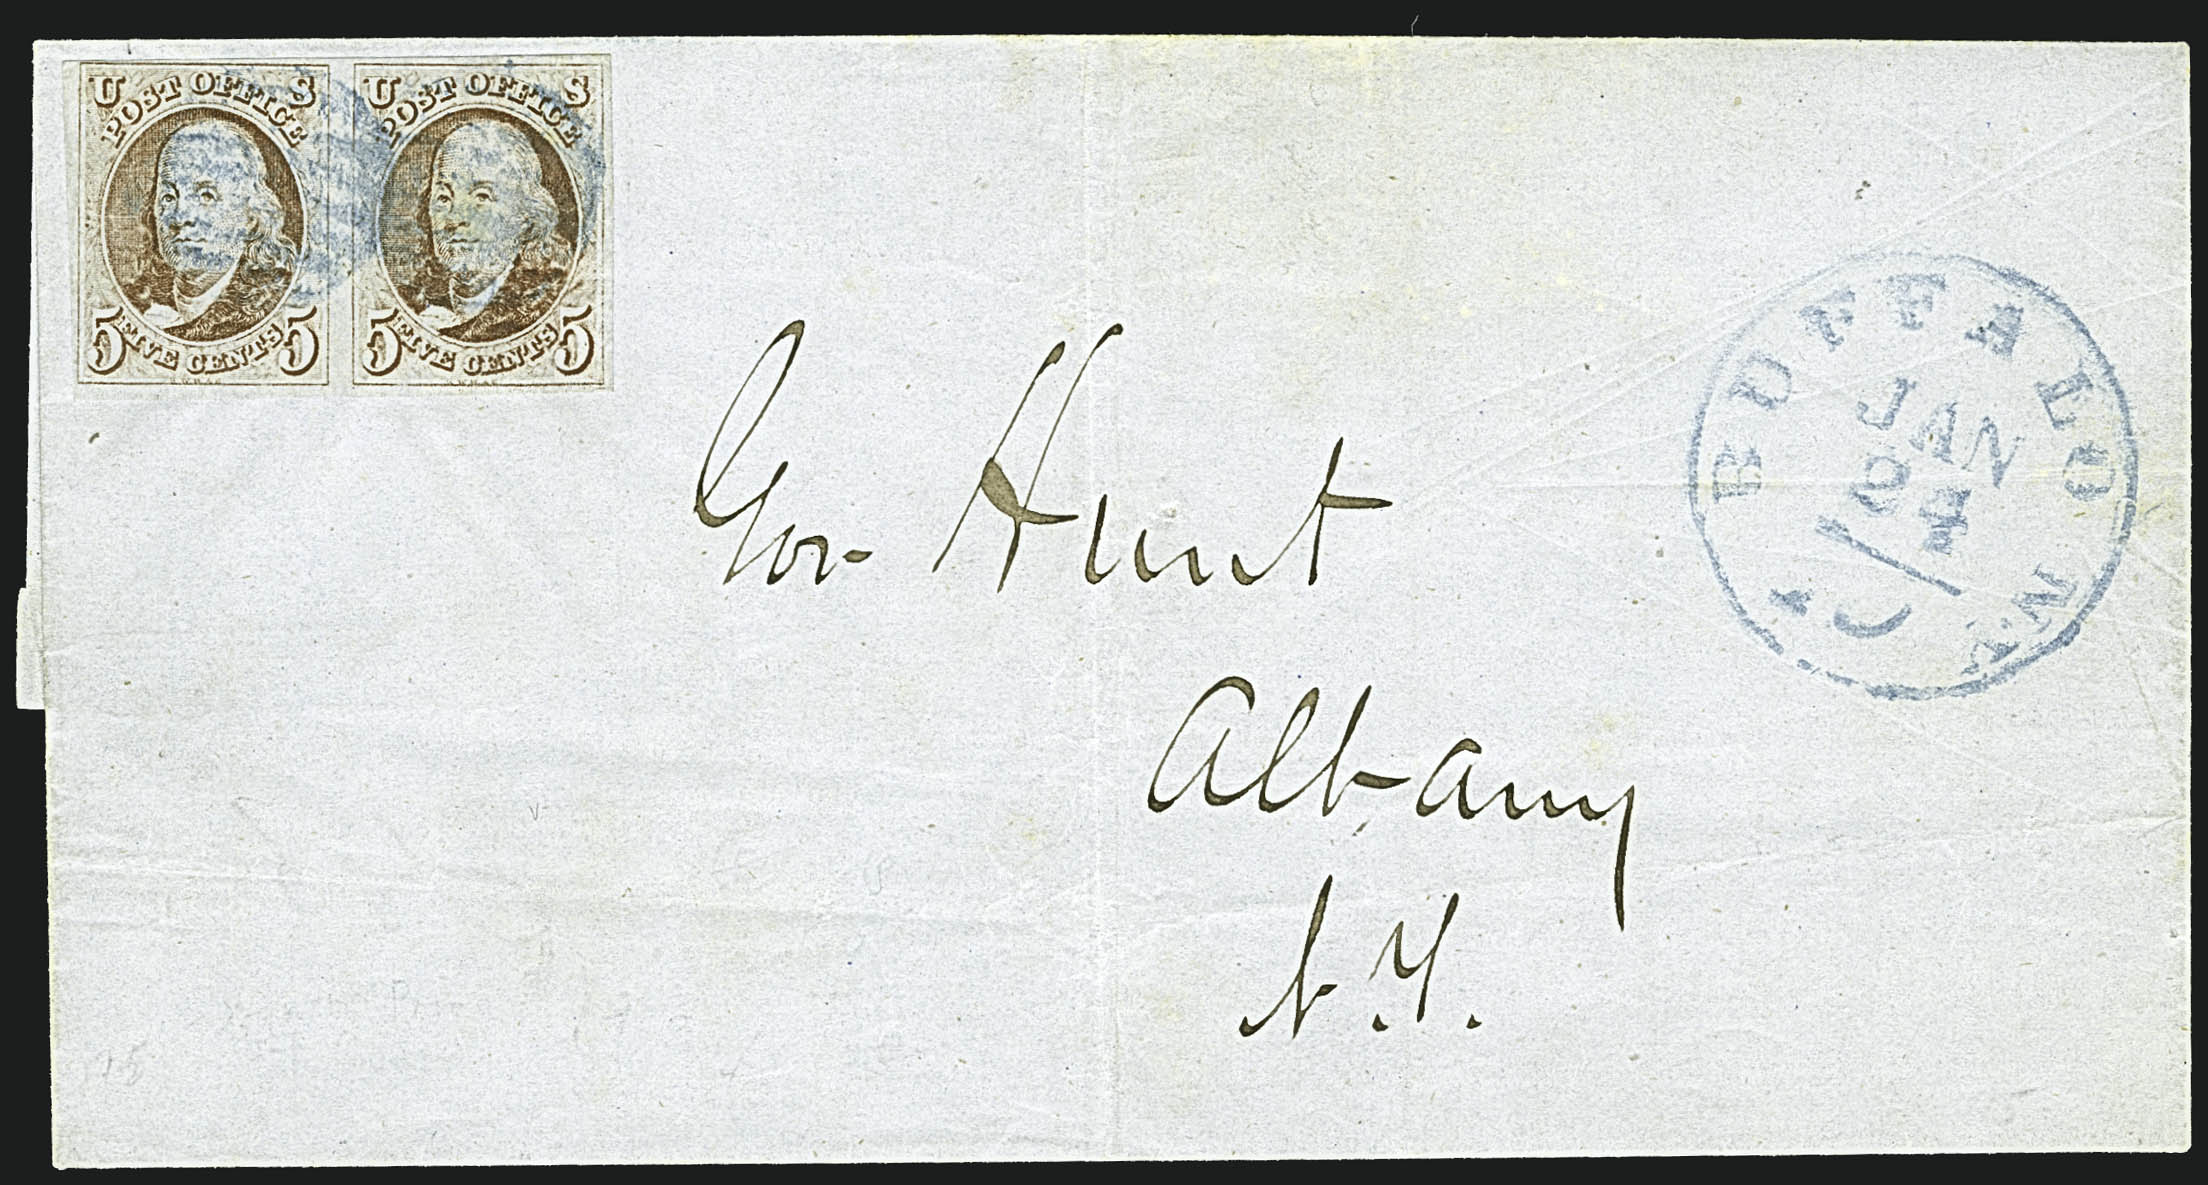 U S
POST OFFICE
5 FIVE CENTS 5
U S
POST OFFICE
5 FIVE CENTS 5
BUFFALO N.Y.
JAN
24
Gov Hunt
Albany
N.Y.